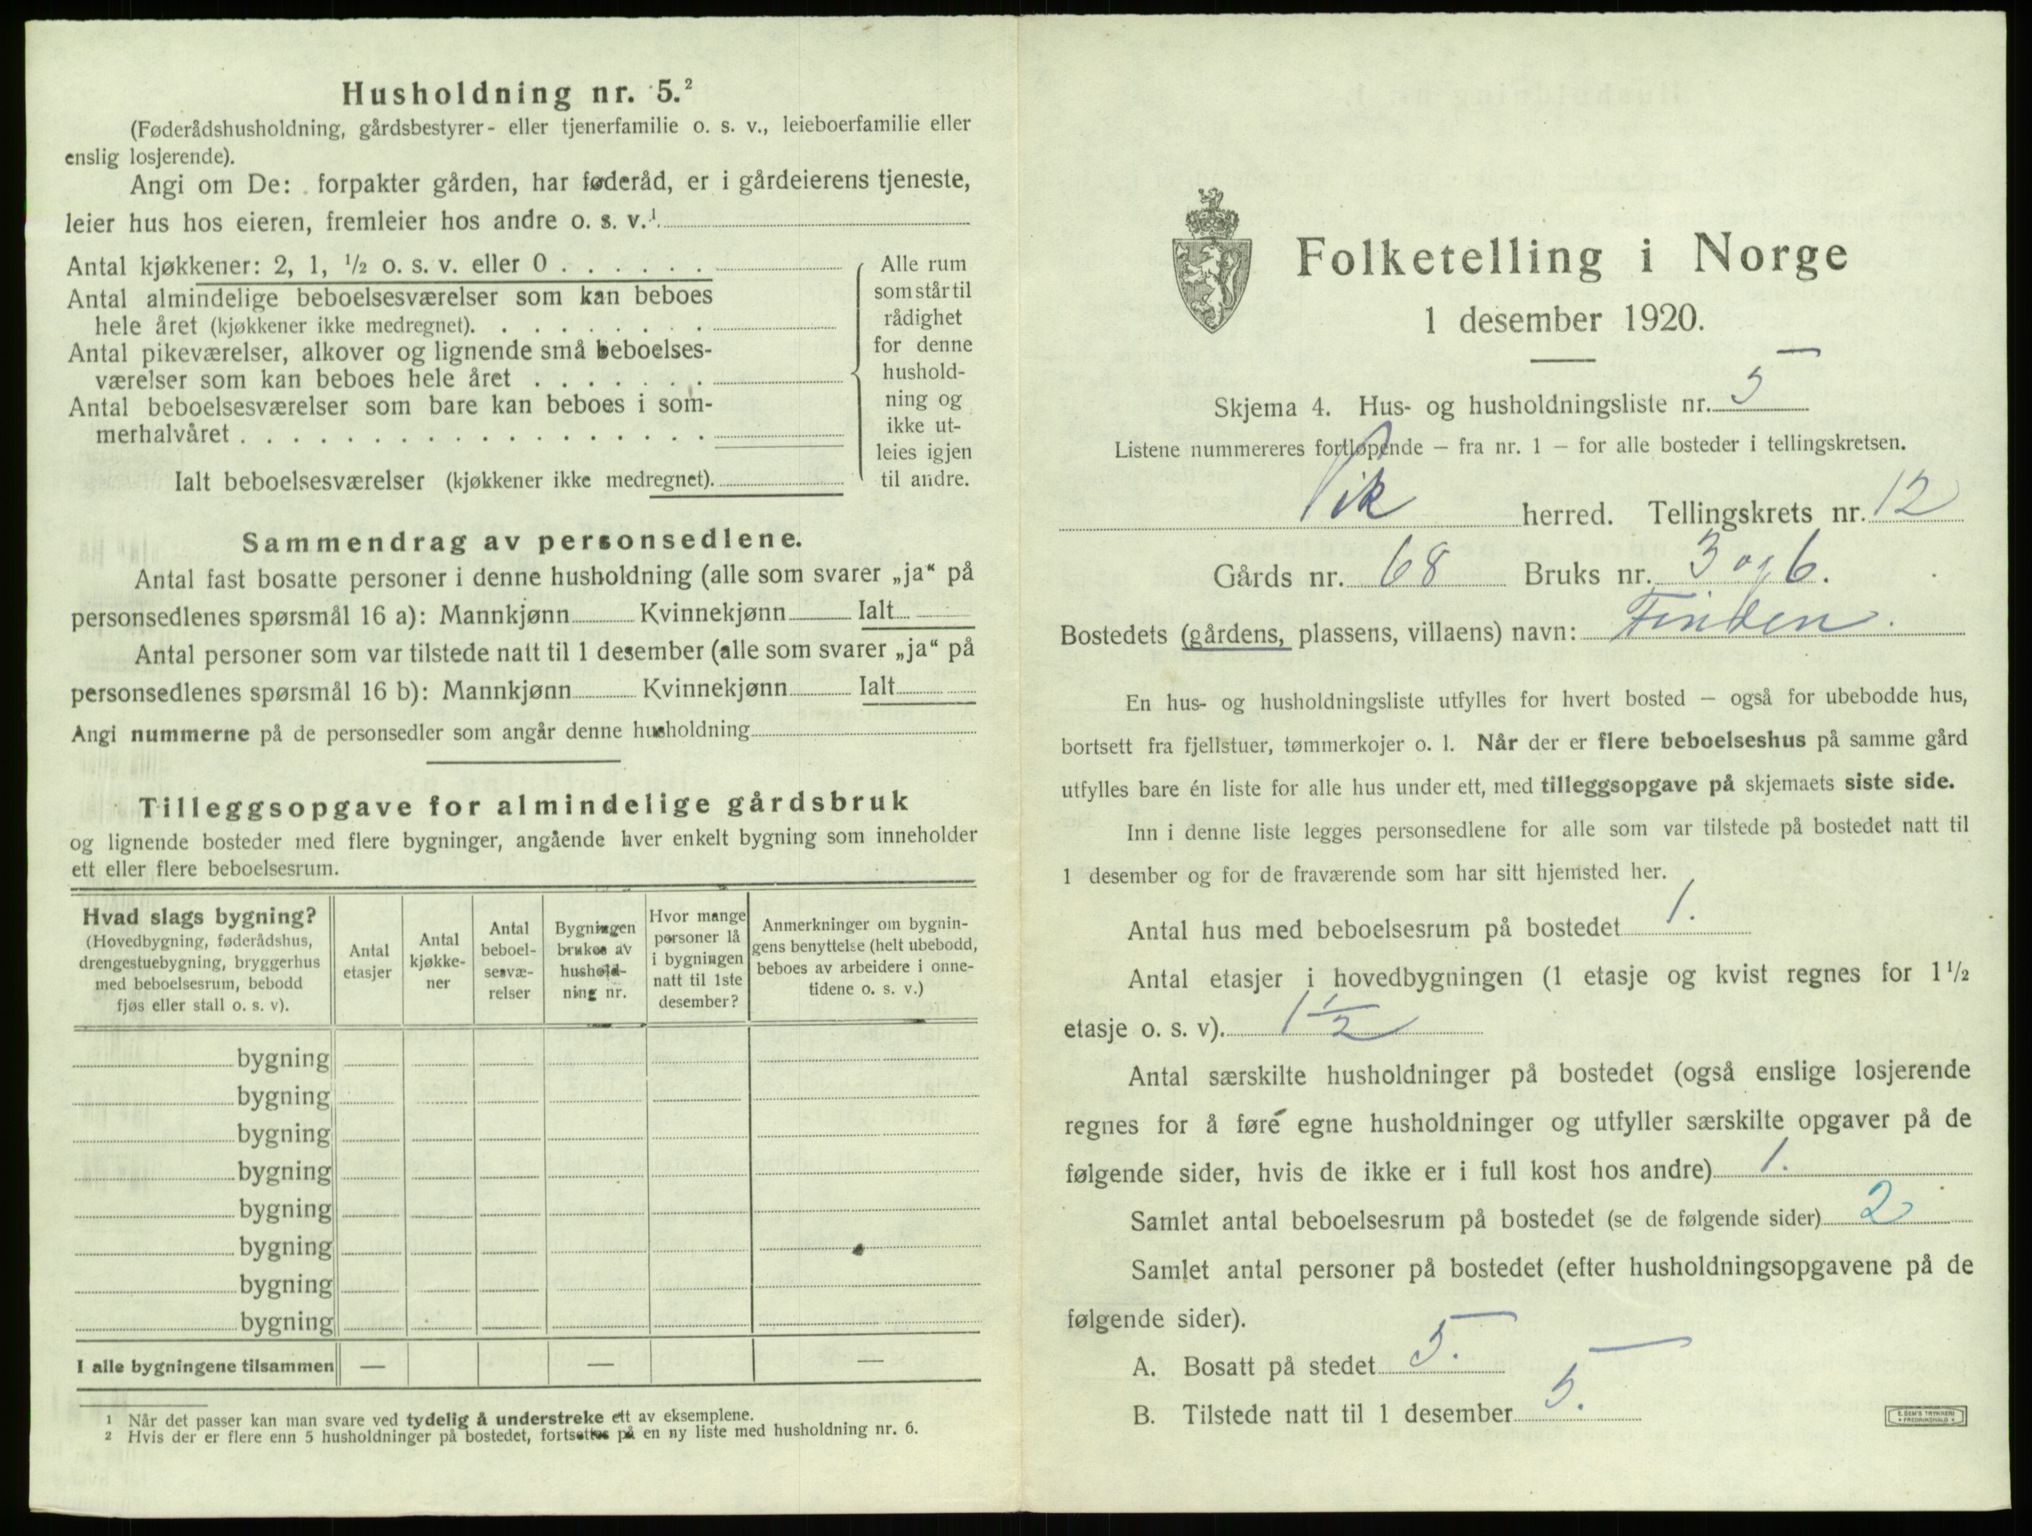 Husholdning nr. 5.²
(Føderådshusholdning, gårdsbestyrer- eller tjenerfamilie o. s. v., leieboerfamilie eller
enslig losjerende).
Angi om De: forpakter gården, har føderåd, er i gårdeierens tjeneste,
leier hus hos eieren, fremleier hos andre o. s. v.¹
Antal kjøkkener: 2, 1, ½ o. s. v. eller 0 . . . . . .
Antal almindelige beboelsesværelser som kan beboes
hele året (kjøkkener ikke medregnet). . . . . . . . .
Antal pikeværelser, alkover og lignende små beboelses-
værelser som kan beboes hele året . . . . . . .
Antal beboelsesværelser som bare kan beboes i som-
merhalvåret . . . . . . . . . . . . . . . . . .
Ialt beboelsesværelser (kjøkkener ikke medregnet).
Alle rum
som står til
rådighet
for denne
hushold-
ning og
ikke ut-
leies igjen
til andre.
Sammendrag av personsedlene.
Antal fast bosatte personer i denne husholdning (alle som svarer „ja“ på
personsedlenes spørsmål 16 a): Mannkjønn Kvinnekjønn Ialt
Antal personer som var tilstede natt til 1 desember (alle som svarer „ja“ på
personsedlenes spørsmål 16 b): Mannkjønn Kvinnekjønn Ialt
Angi nummerne på de personsedler som angår denne husholdning
Tilleggsopgave for almindelige gårdsbruk
og lignende bosteder med flere bygninger, angående hver enkelt bygning som inneholder
ett eller flere beboelsesrum.
Hvad slags bygning?
(Hovedbygning, føderådshus,
drengestuebygning, bryggerhus
med beboelsesrum, bebodd
fjøs eller stall o. s. v).
Antal
etasjer
Antal
kjøkke-
ner
Antal
beboel-
sesvæ-
relser
Bygningen
brukes av
hushold-
ning nr.
Hvor mange
personer lå
i bygningen
natt til 1ste
desember?
Anmerkninger om bygnin-
gens benyttelse (helt ubebodd,
beboes av arbeidere i onne-
tidene o. s. v.)
bygning
bygning
bygning
bygning
bygning
bygning
bygning
bygning
I alle bygningene tilsammen — — —
¹ Når det passer kan man svare ved tydelig å understreke ett av eksemplene.
² Hvis der er flere enn 5 husholdninger på bostedet, fortsettes på en ny liste med husholdning nr. 6.
Folketelling i Norge
1 desember 1920.
Skjema 4. Hus- og husholdningsliste nr. 5
Listene nummereres fortløpende – fra nr. 1 – for alle bosteder i tellingskretsen.
Vik herred. Tellingskrets nr. 12
Gårds nr. 68 Bruks nr. 3 og 6.
Bostedets (gårdens, plassens, villaens) navn: Finden.
En hus- og husholdningsliste utfylles for hvert bosted – også for ubebodde hus,
bortsett fra fjellstuer, tømmerkojer o. l. Når der er flere beboelseshus på samme gård
utfylles bare én liste for alle hus under ett, med tilleggsopgave på skjemaets siste side.
Inn i denne liste legges personsedlene for alle som var tilstede på bostedet natt til
1 desember og for de fraværende som har sitt hjemsted her.
Antal hus med beboelsesrum på bostedet 1.
Antal etasjer i hovedbygningen (1 etasje og kvist regnes for 1½
etasje o. s. v). 1½
Antal særskilte husholdninger på bostedet (også enslige losjerende
regnes for å føre egne husholdninger og utfyller særskilte opgaver på de
følgende sider, hvis de ikke er i full kost hos andre) 1.
Samlet antal beboelsesrum på bostedet (se de følgende sider) 2
Samlet antal personer på bostedet (efter husholdningsopgavene på de
følgende sider).
A. Bosatt på stedet 5.
B. Tilstede natt til 1 desember 5.
E. SEM'S TRYKKERI
FREDRIKSHALD